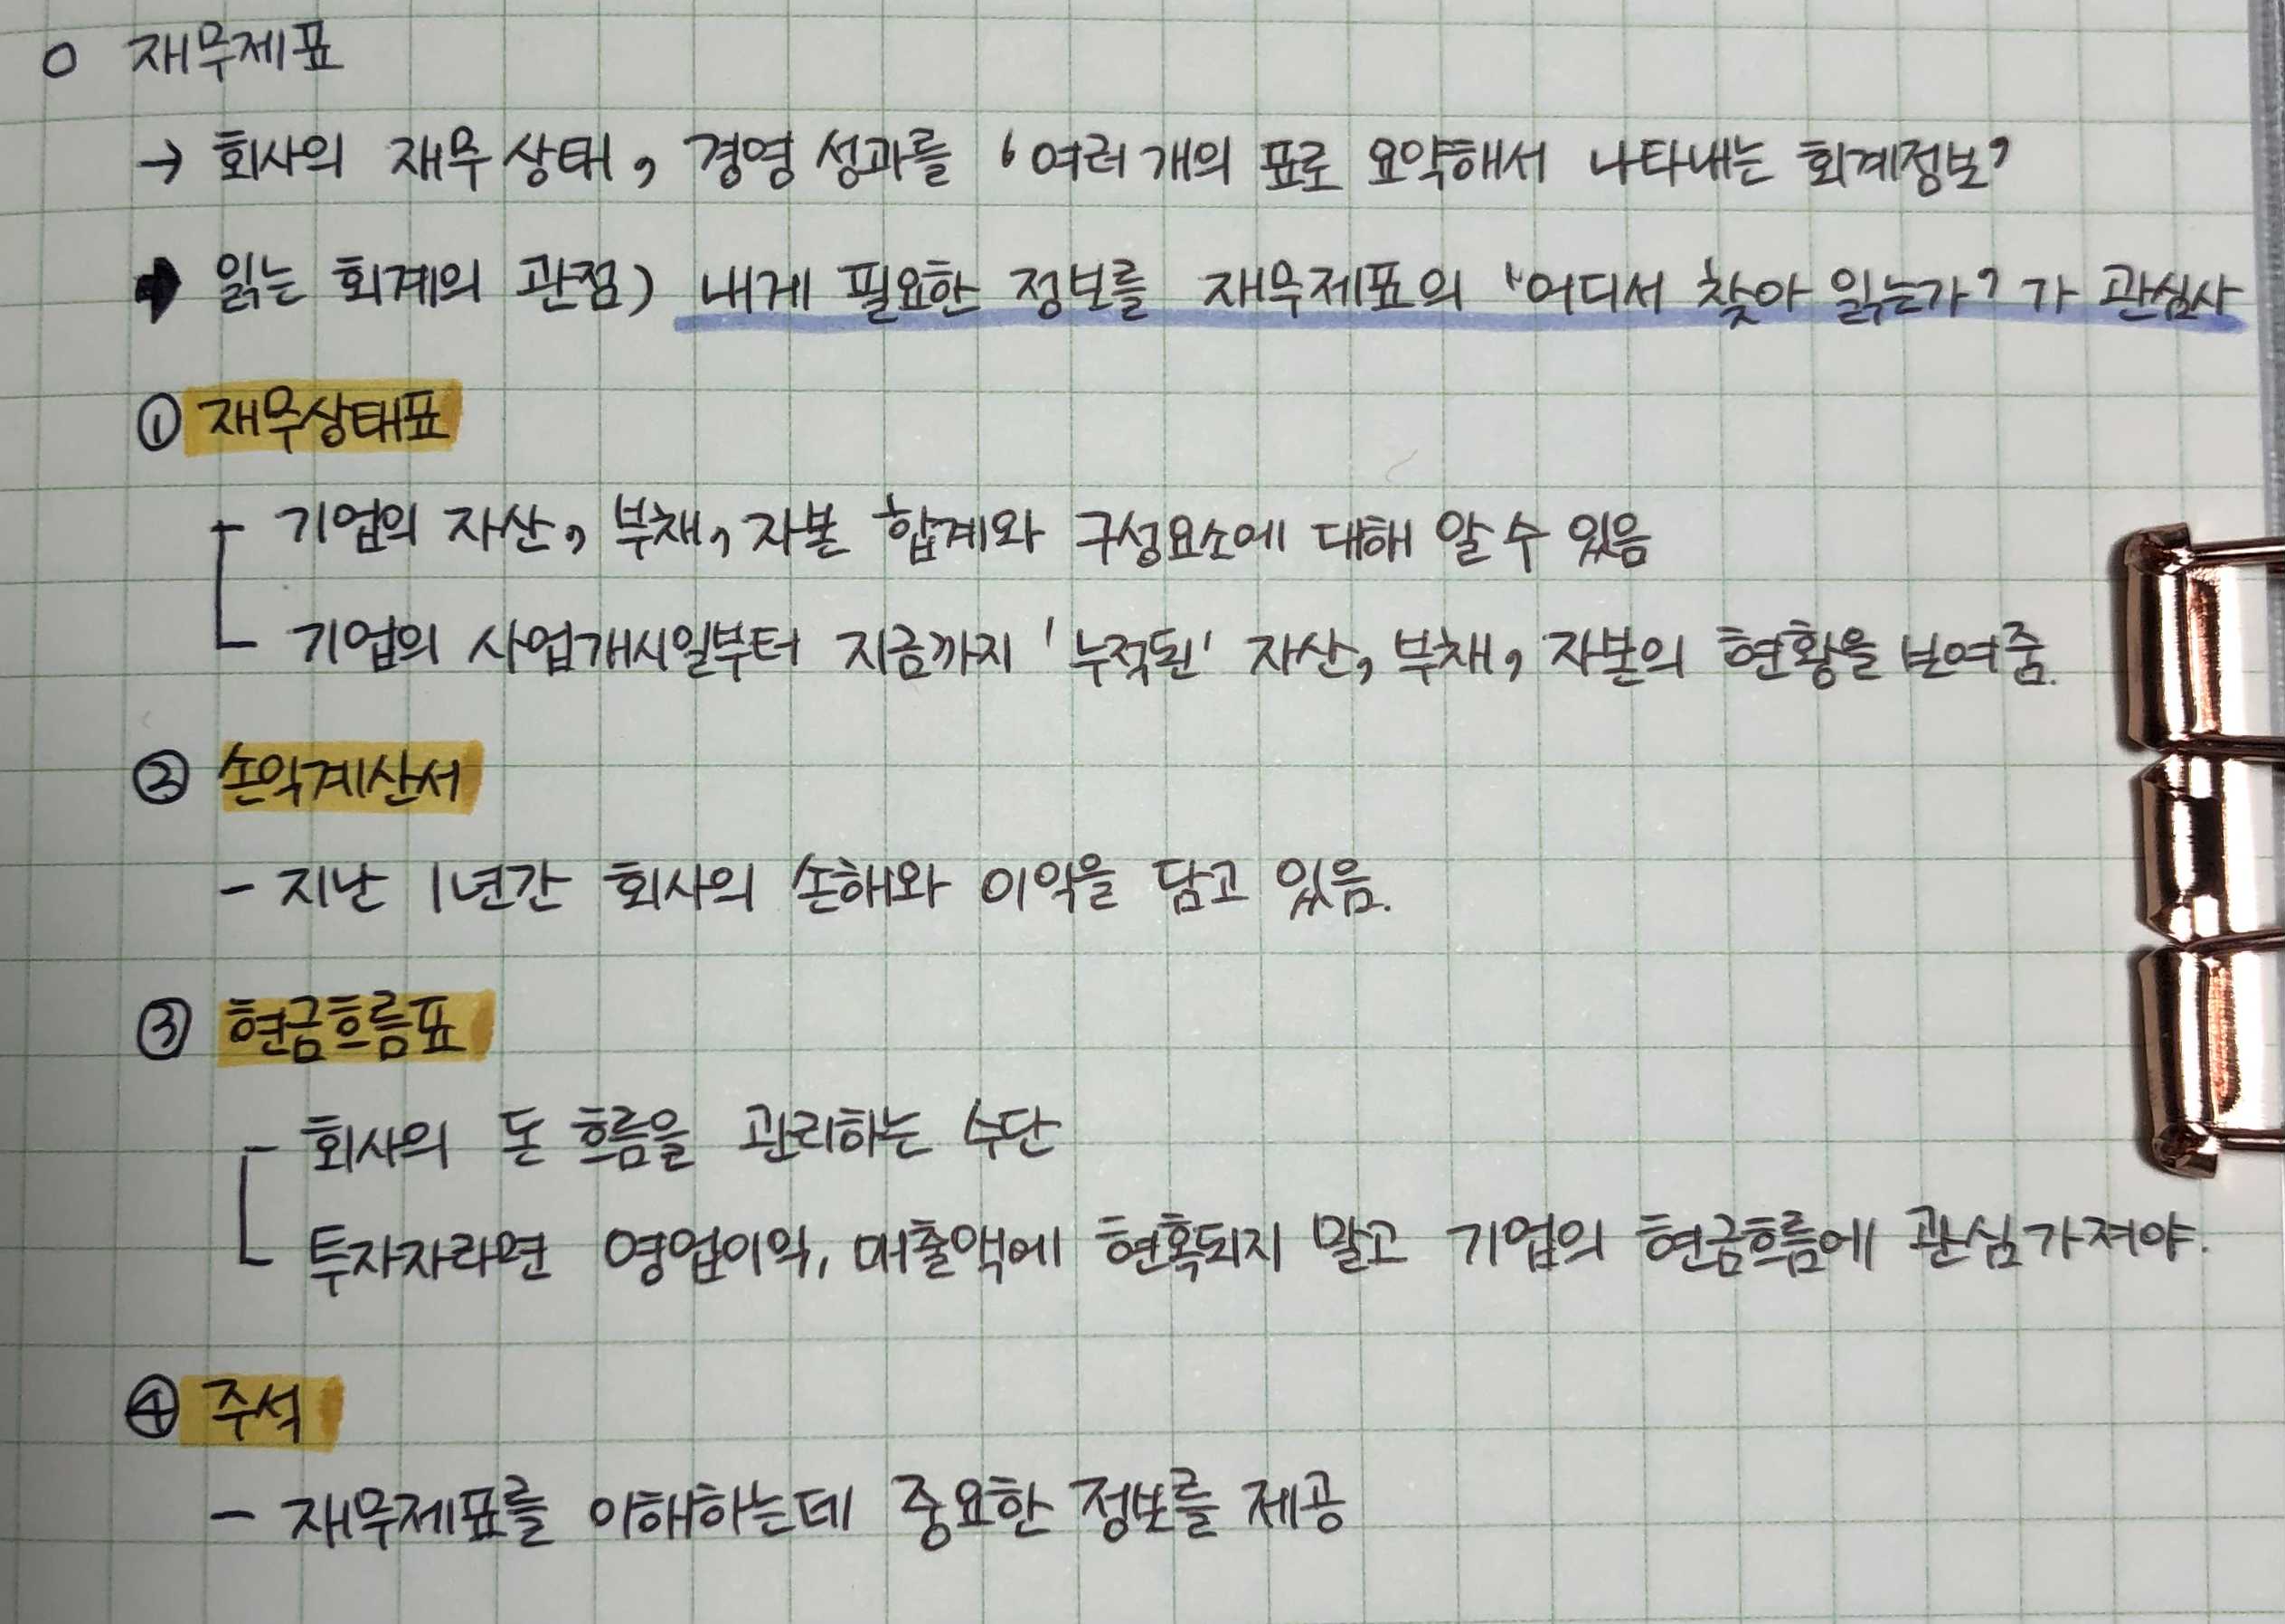 ○ 재무제표
→ 회사의 재무상태, 경영성과를 '여러 개의 표로 요약해서 나타내는 회계정보'
➡ 읽는 회계의 관점) 내게 필요한 정보를 재무제표의 '어디서 찾아 읽는가?'가 관심사
① 재무상태표
- 기업의 자산, 부채, 자본 합계와 구성요소에 대해 알 수 있음
- 기업의 사업개시일부터 지금까지 '누적된' 자산, 부채, 자본의 현황을 보여줌.
② 손익계산서
- 지난 1년간 회사의 손해와 이익을 담고 있음.
③ 현금흐름표
- 회사의 돈 흐름을 관리하는 수단
- 투자자라면 영업이익, 매출액에 현혹되지 말고 기업의 현금흐름에 관심가져야.
④ 주석
- 재무제표를 이해하는데 중요한 정보를 제공